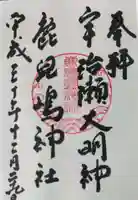 奉拝
宇治瀬大明神
鹿兒嶋神社
平成三十年十二月二九日